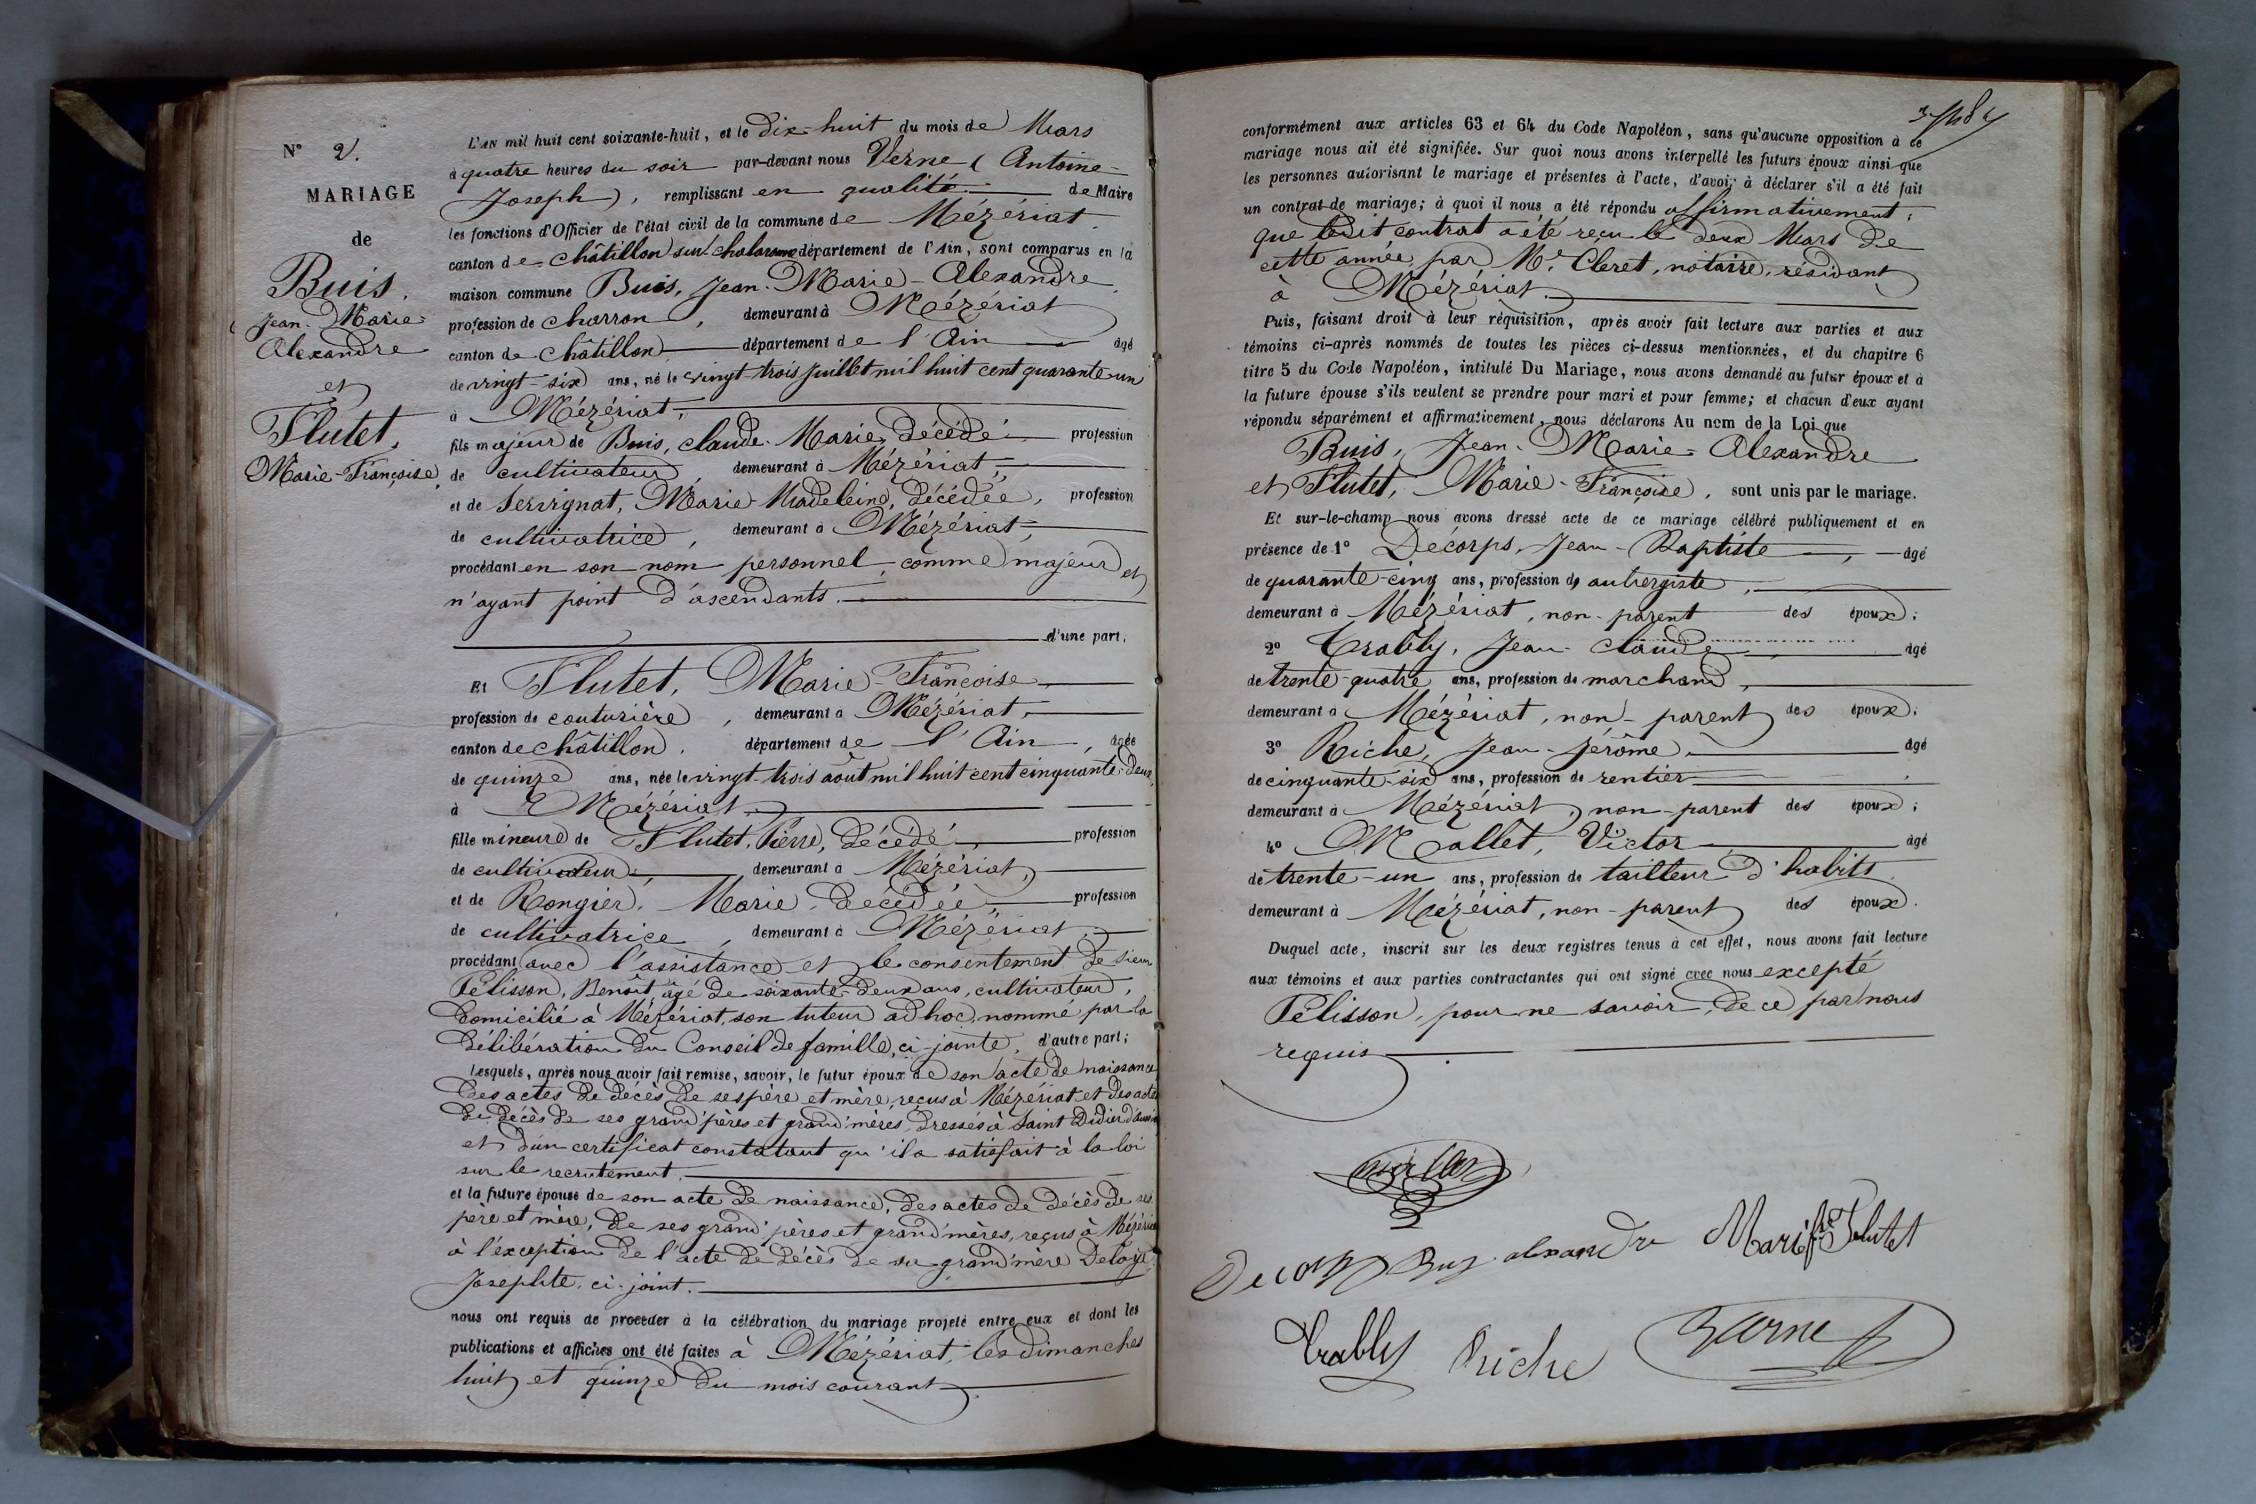 N° 2.
MARIAGE
de
Buis,
Jean-Marie
Alexandre
et
Flutet,
Marie-Françoise,
L'AN mil huit cent soixante-huit, et le dix-huit du mois de Mars
à quatre heures du soir par-devant nous Verne (Antoine-
Joseph), remplissant en qualité de Maire
les fonctions d'Officier de l'état civil de la commune de Mézériat,
canton de châtillon sur chalaronne département de l'Ain, sont comparus en la
maison commune Buis, Jean-Marie-Alexandre,
profession de charron, demeurant à Mézériat
canton de châtillon, département de l'Ain âgé
de vingt-six ans, né le vingt-trois juillet mil huit cent quarante-un
à Mézériat,
fils majeur de Buis, claude-Marie, décédé profession
de cultivateur, demeurant à Mézériat,
et de Servignat, Marie Madeleine, décédée, profession
de cultivatrice, demeurant à Mézériat,
procédant en son nom personnel, comme majeur et
n'ayant point d'ascendants.
d'une part;
Et Flutet, Marie-Françoise,
profession de couturière, demeurant à Mézériat,
canton de châtillon, département de l'Ain, âgée
de quinze ans, née le vingt-trois août mil huit cent cinquante-deux,
à Mézériat
fille mineure de Flutet, Pierre, décédé, profession
de cultivateur, demeurant à Mézériat,
et de Rongier, Marie, décédée, profession
de cultivatrice, demeurant à Mézériat,
procédant avec l'assistance et le consentement de sieur
Pélisson, Benoit âgé de soixante-deux ans, cultivateur,
domicilié à Mézériat, son tuteur ad hoc, nommé par la
délibération du Conseil de famille, ci-jointe, d'autre part;
Lesquels, après nous avoir fait remise, savoir, le futur époux de son acte de naissance
des actes de décès de ses père et mère, reçus à Mézériat et des actes
de décès de ses grand'pères et grand'mères, dressés à Saint Didier
et d'un certificat constatant qu'il a satisfait à la loi
sur le recrutement.
et la future épouse de son acte de naissance, des actes de décès de ses
père et mère, de ses grand'pères et grand'mères, reçus à Mézériat
à l'exception de l'acte de décès de sa grand'mère Deloye
Josephte, ci-joint.
nous ont requis de procéder à la célébration du mariage projeté entre eux et dont les
publications et affiches ont été faites à Mézériat, les dimanches
huit et quinze du mois courant
conformément aux articles 63 et 64 du Code Napoléon, sans qu'aucune opposition à ce
mariage nous ait été signifiée. Sur quoi nous avons interpellé les futurs époux ainsi que
les personnes autorisant le mariage et présentes à l'acte, d'avoir à déclarer s'il a été fait
un contrat de mariage; à quoi il nous a été répondu affirmativement;
que ledit contrat a été reçu le deux Mars de
cette année par Mr. Cleret, notaire, résidant
à Mézériat.
Puis, faisant droit à leur réquisition, après avoir fait lecture aux parties et aux
témoins ci-après nommés de toutes les pièces ci-dessus mentionnées, et du chapitre 6
titre 5 du Code Napoléon, intitulé Du Mariage, nous avons demandé au futur époux et à
la future épouse s'ils veulent se prendre pour mari et pour femme; et chacun d'eux ayant
répondu séparément et affirmativement, nous déclarons Au nom de la Loi que
Buis, Jean-Marie-Alexandre
et Flutet, Marie-Françoise, sont unis par le mariage.
Et sur-le-champ nous avons dressé acte de ce mariage célébré publiquement et en
présence de 1° Decorps, Jean-Baptiste, âgé
de quarante-cinq ans, profession de aubergiste,
demeurant à Mézériat, non-parent des époux;
2° Trably, Jean-Claude, âgé
de trente-quatre ans, profession de marchand,
demeurant à Mézériat, non-parent des époux;
3° Riche, Jean-Jérôme, âgé
de cinquante-six ans, profession de rentier
demeurant à Mézériat, non-parent des époux;
4° Mallet, Victor, âgé
de trente-un ans, profession de tailleur d'habits,
demeurant à Mézériat, non-parent des époux.
Duquel acte, inscrit sur les deux registres tenus à cet effet, nous avons fait lecture
aux témoins et aux parties contractantes qui ont signé avec nous excepté
Pélisson, pour ne savoir, de ce par nous
requis
Decorps Buy alexandre Marie fse Flutet
Trably Riche Verne